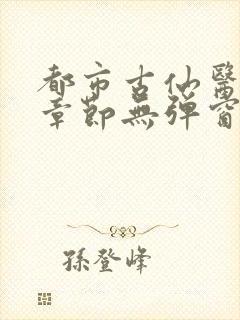 都市古仙醫
章節無彈窗
孫登峰